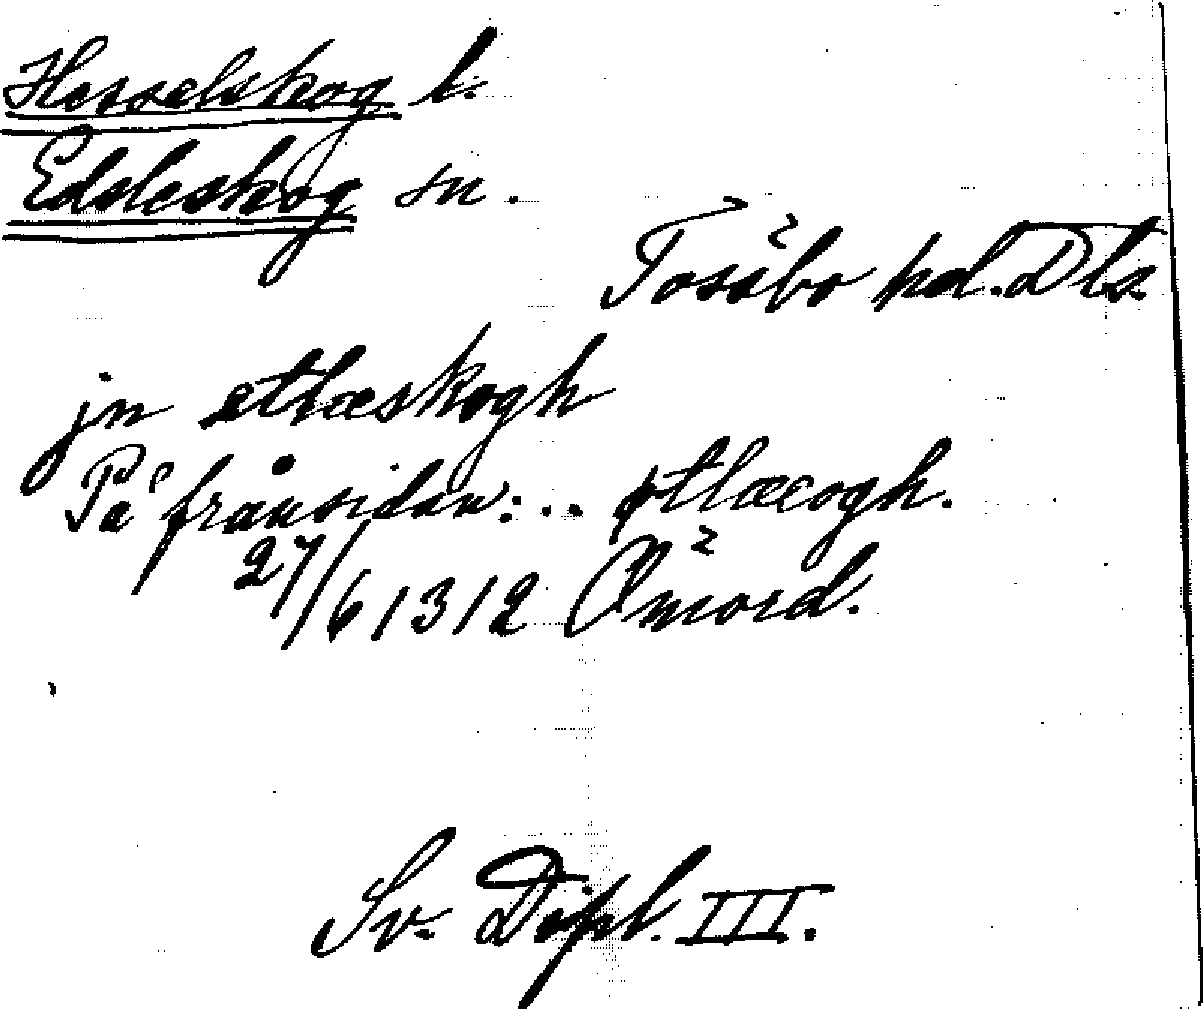 Hesselskog l.
Edsleskog sn.
Tössbo hd. Dls
jn etlæskogh
På frånsidan: .. ptlæcogh.
27/6 1312 Åmord.
Sv. Dipl. III.